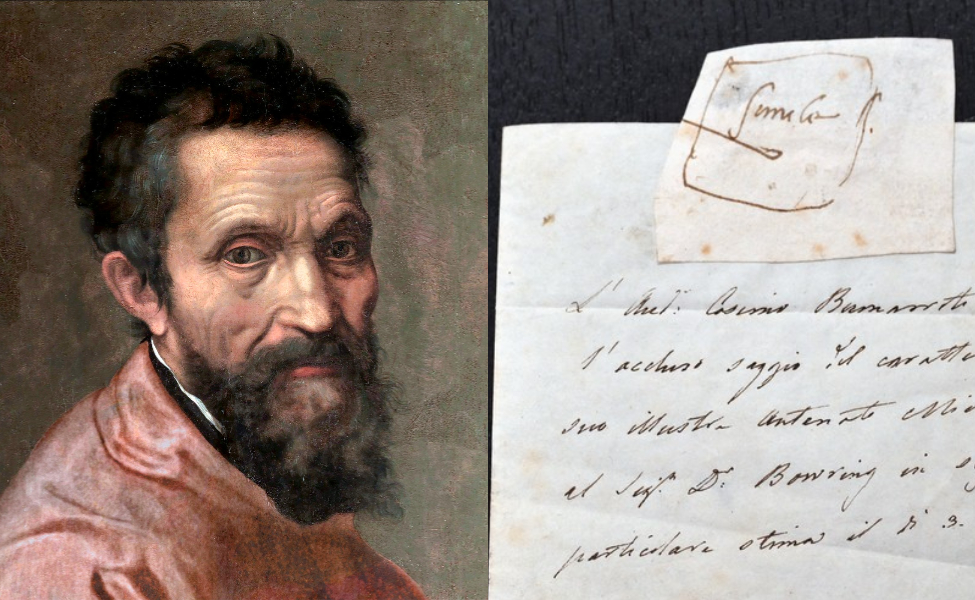 Simile
L' Aud: Cosimo Buonarroti
l' accluso saggio del caratte
suo illustre Antenato Mi
al Sigr. Dr. Bowring in s
particolare stima il dì 3.